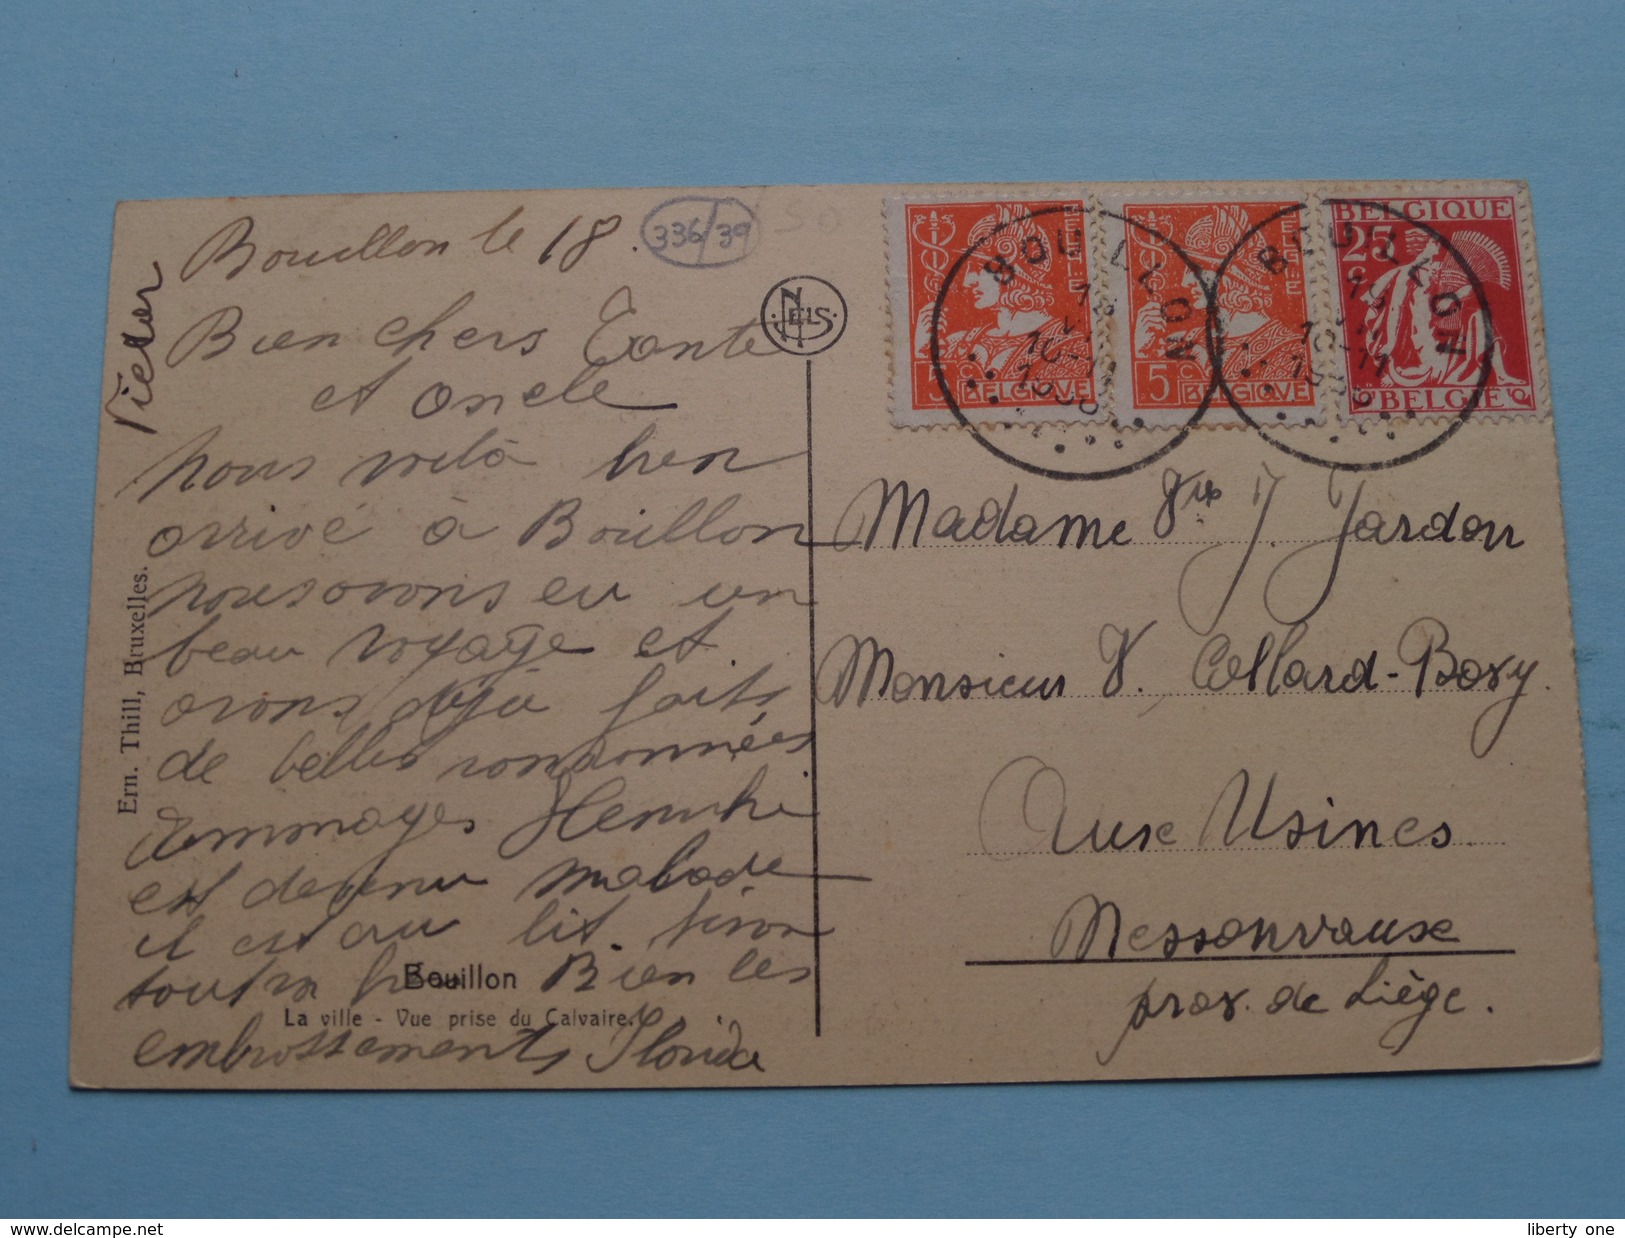 Bouillon le 18.
336/39
50
Victor
Bien chers Tante
et oncle
nous voilà bien
arrivé à Bouillon
nous avons eu un
beau voyage et
avons déjà faits
de belles randonnées
dommages
est devenu malade
il est au lit. sinon
tout va bien Bien les
embrassements Florida
NELS
Ern. Thill, Bruxelles.
Bouillon
La ville - Vue prise du Calvaire.
BELGIE
5 C BELGIQUE
BELGIE
5 C BELGIQUE
BELGIQUE
25
BELGIE
BOUILLON
18
10-11
1936
BOUILLON
18
10-11
1936
Madame Vve J. Jardon
Monsieur V. Collard-Bovy.
Aux Usines.
Nessonvaux
prov. de Liège.
liberty one